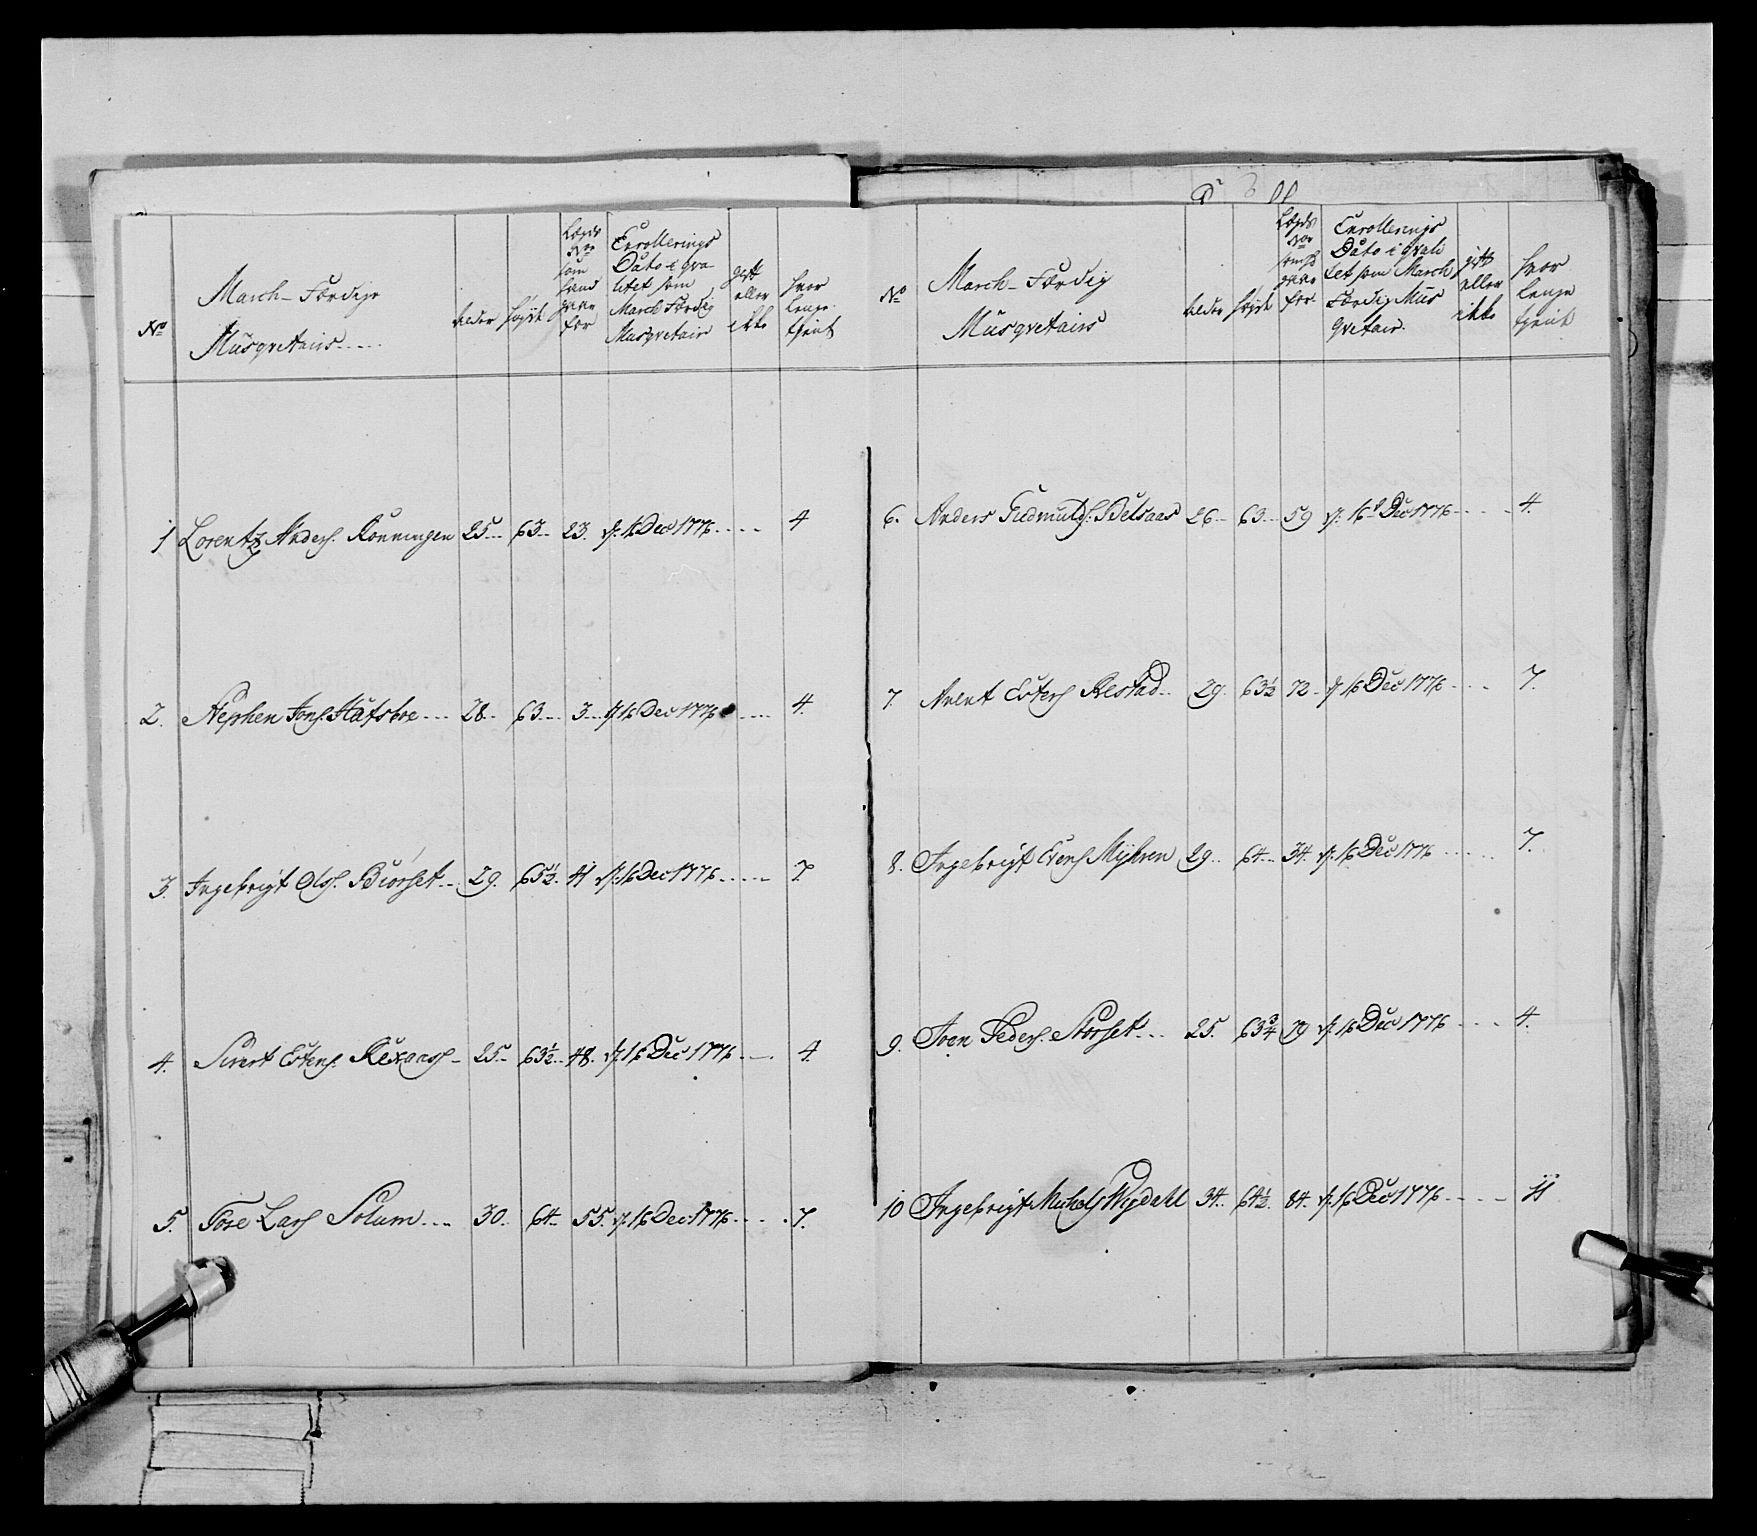 No
March-Færdige
Musqvetairs
Alder
høyde
Lægds
No
som
hand
staar
for
Enrollerings
Dato i qva
litet som
March Færdig
Musqvetair
gift
eller
ikke
hvor
lenge
tient
1 Lorentz Anders. Rønningen 25 63 23. d. 16 Dec 1776 4
2. Stephen Jons. 28 63 3 d. 16 Dec 1776 4.
3. Ingebrigt Ols. Biørset 29. 65½ 41 d. 16 Dec 1776 7.
4. Sivert Estens. 25 63½ 48. d. 16 Dec 1776 4.
5. Tore Lars. Solum 30. 64 55. d. 16 Dec 1776 7.
No
March-Færdig
Musqvetairs
Alder
høyde
Lægds
No
for
Enrollerings
Dato i qvali
tet som March
Færdig Mus
qvetair.
gift
eller
ikke
hvor
lenge
tient
6. Anders Gudmunds. 26 63 59 d. 16 Dec 1776 4.
7. Arent Estens. Restad 29. 63½ 72 d. 16 Dec 1776 7.
8. Ingebrigt Evens. Myhren 29 64 34. d. 16 Dec 1776 7.
9. Joen Peders. Storset 25. 63¾ 79 d. 16 Dec 1776 4.
10 Ingebrigt Michels. Wigdahl 34. 64½. 84. d. 16 Dec 1776 11